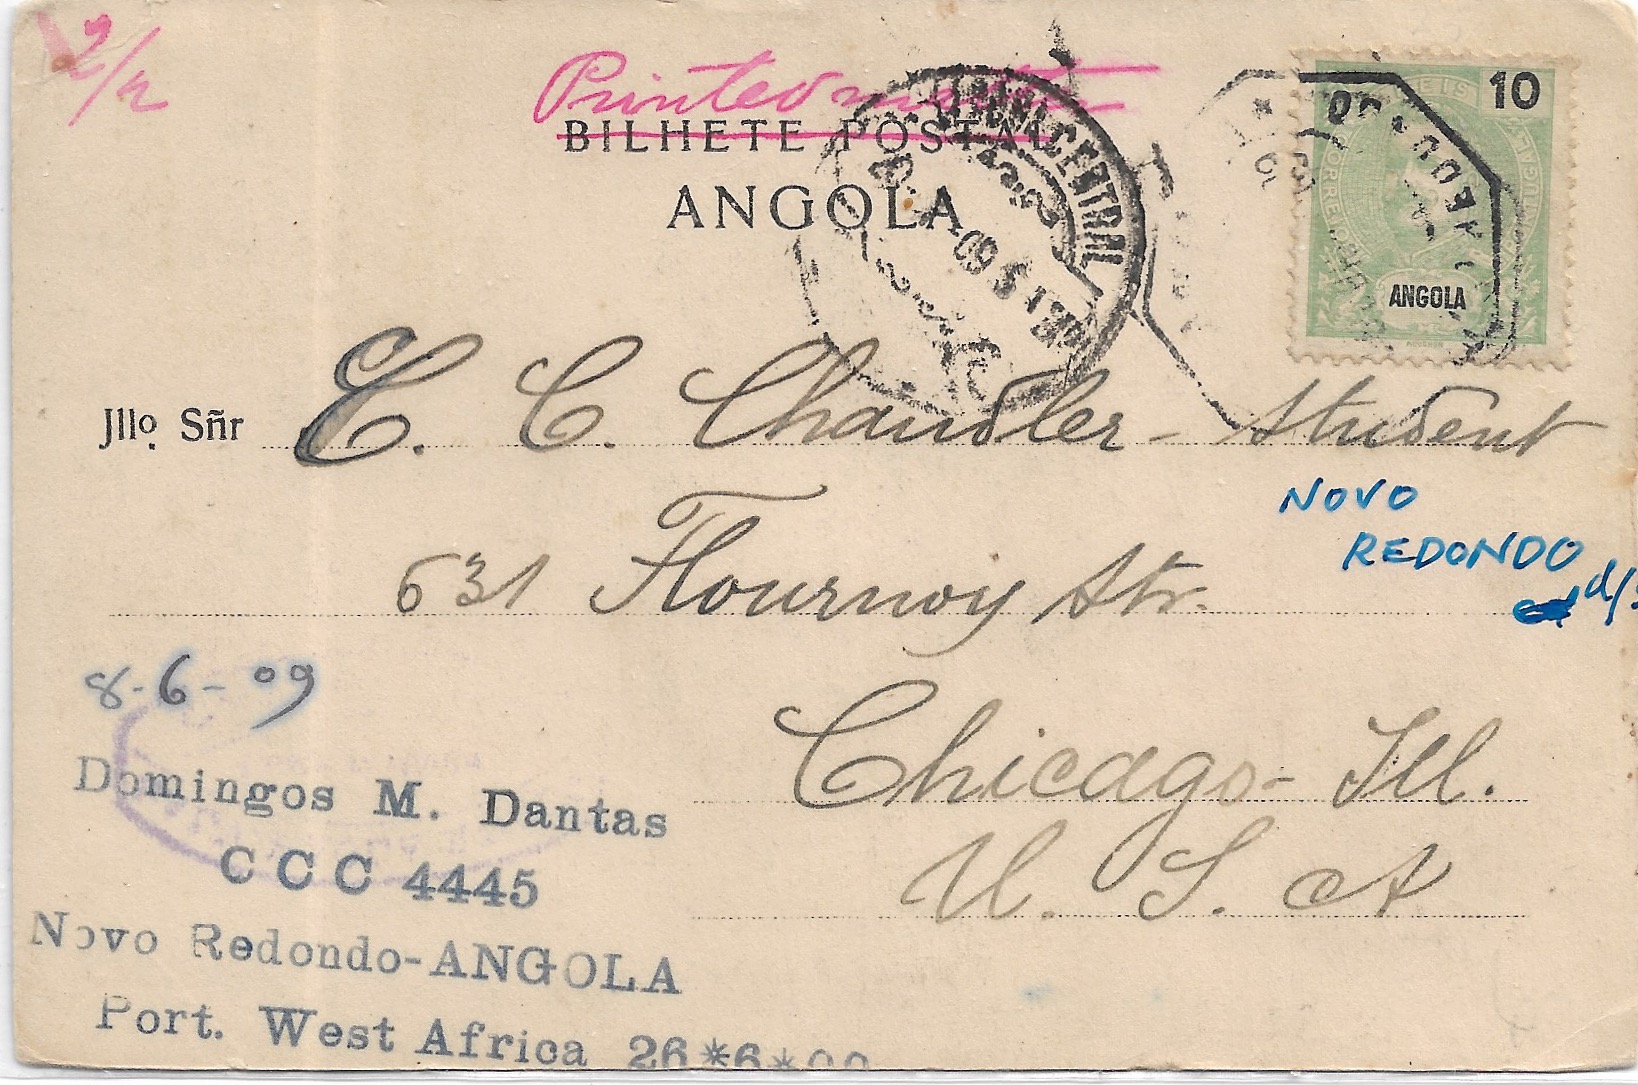 2/r
Printed matter
BILHETE POSTAL
ANGOLA
LISBOA CENTRAL
10
REIS
CORREIOS
ANGOLA
REDONDO
Jllo. Sñr E. C. Chandler - Student
NOVO
REDONDO
631 Flournoy Str.
8-6-09
Chicago - Ill.
U. S. A
Domingos M. Dantas
CCC 4445
Novo Redondo-ANGOLA
Port. West Africa 26*6*09